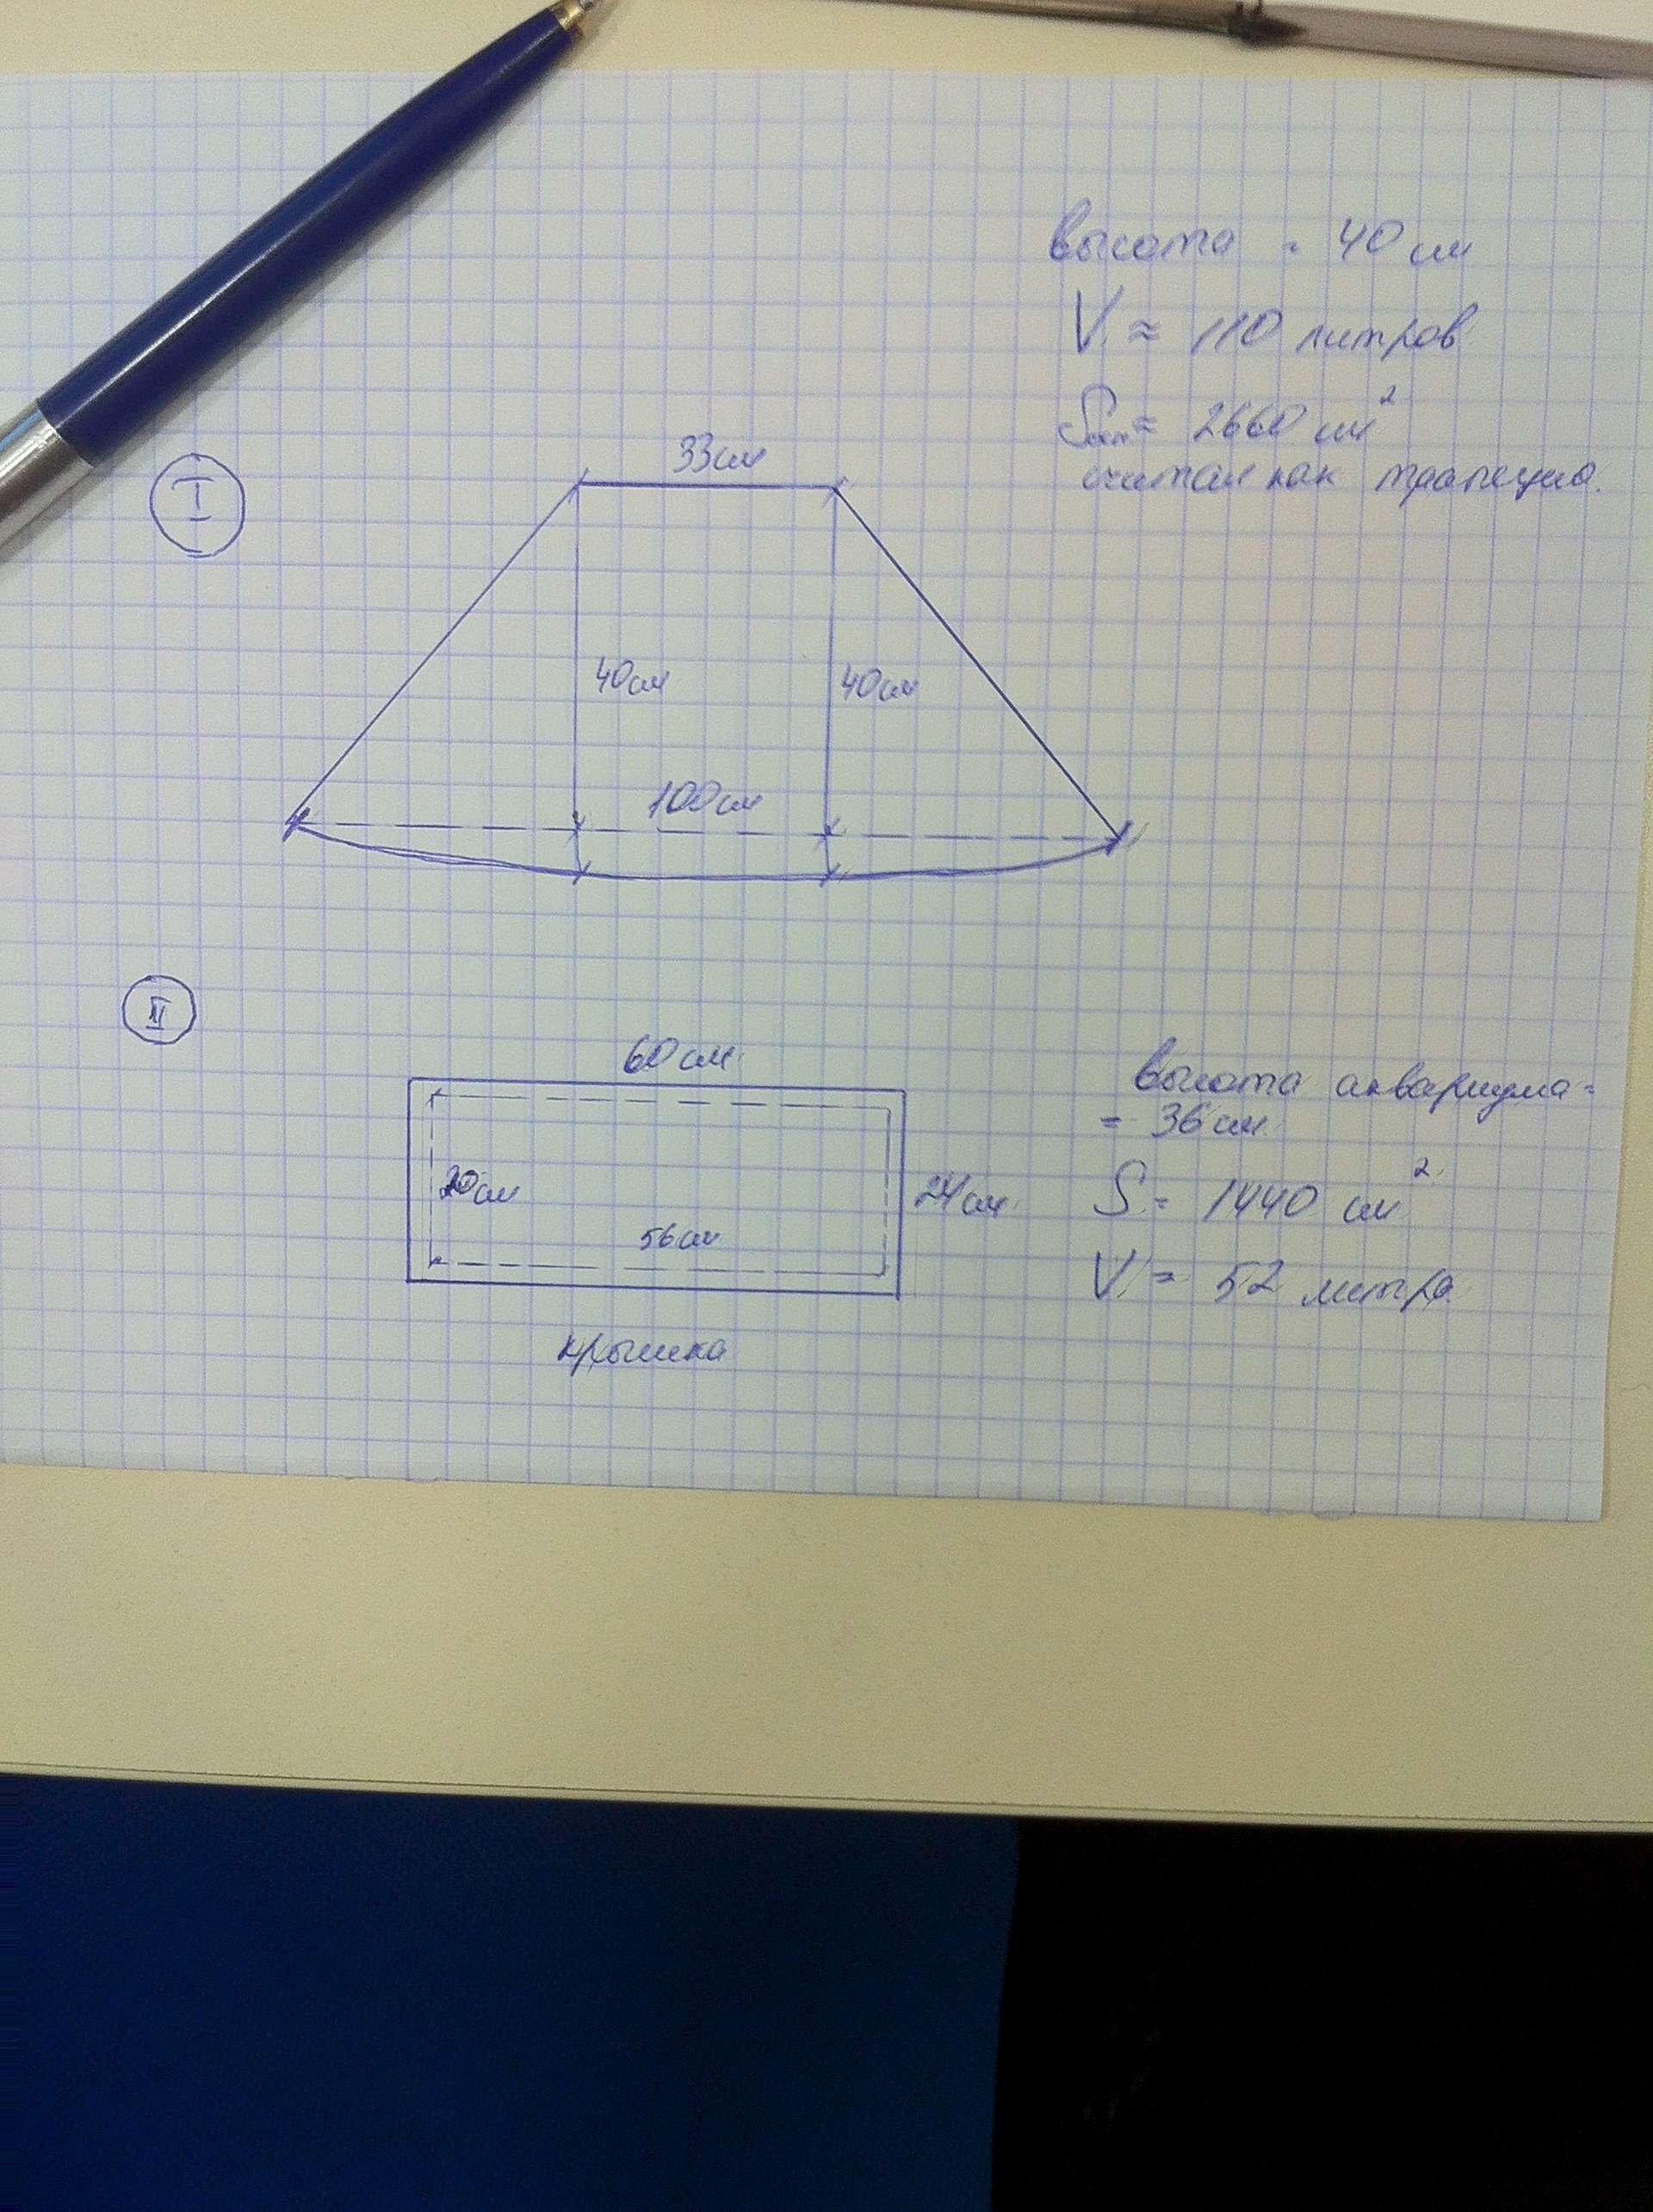 высота = 40 см
V ≈ 110 литров
≈ 2660 см²
считал как трапецию.
I
33см
40см
40см
100см
II
60см
20см
24см
56см
крышка
высота аквариума =
= 36 см
S = 1440 см²
V = 52 литра